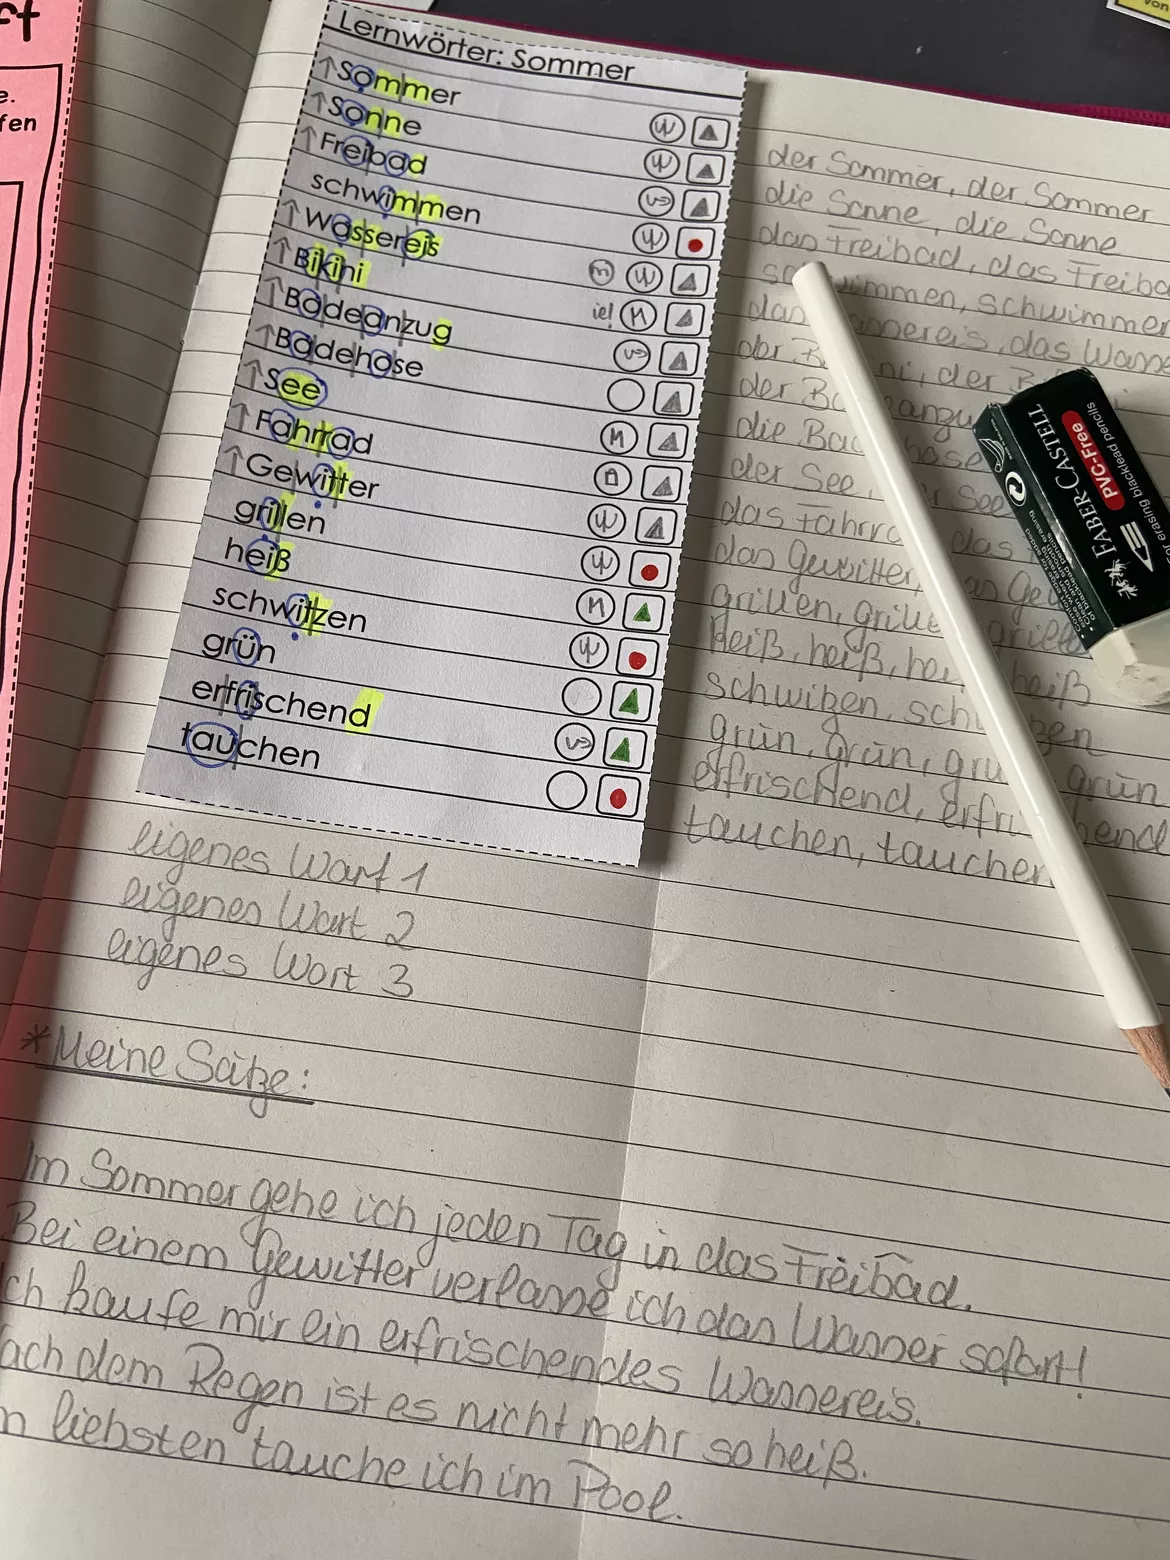 ft
e.
fen
von
Lernwörter: Sommer
↑Sommer
↑Sonne
↑Freibad
schwimmen
↑Wassereis
↑Bikini
iel
↑Badeanzug
↑Badehose
↑See
↑Fahrrad
↑Gewitter
grillen
heiß
schwitzen
grün
erfrischend
tauchen
der Sommer, der Sommer
die Sonne, die Sonne
das Freibad, das Freiba
immen, schwimmen
das Wasse
der
der anzu
die Bad hose
der See, See
das Fahrra das
das Gewitter, Ge
grillen, grille grille
heiß, heiß, hei heiß
schwitzen, sch zen
grün, grün, grü grün
erfrischend, erfri hend
tauchen, tauchen
eigenes Wort 1
eigenes Wort 2
eigenes Wort 3
*Meine Sätze:
Im Sommer gehe ich jeden Tag in das Freibad.
Bei einem Gewitter verlasse ich das Wasser sofort!
ch kaufe mir ein erfrischendes Wassereis.
ach dem Regen ist es nicht mehr so heiß.
m liebsten tauche ich im Pool.
FABER-CASTELL
PVC-Free
erasing blacklead pencils